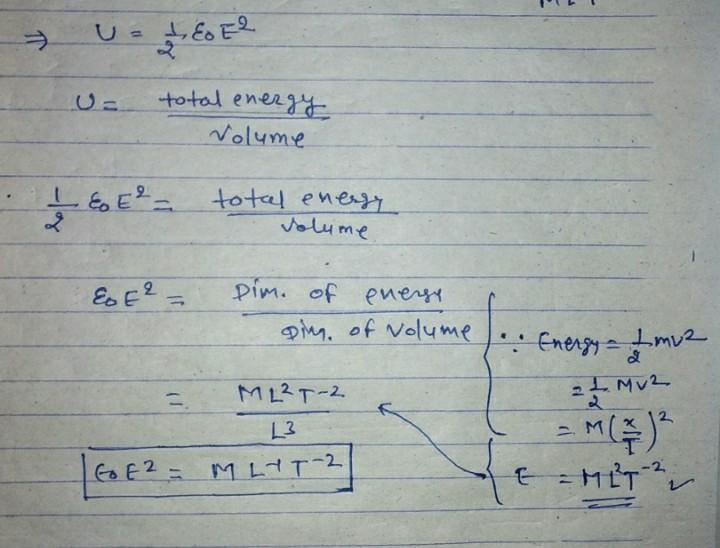 ⇒ U = 1/2 ε0 E²
U = total energy / Volume
1/2 ε0 E² = total energy / volume
ε0 E² = Dim. of energy / Dim. of Volume
= ML²T-2 / L3
ε0 E² = M L-1 T-2
∵ Energy = 1/2 mv2
= 1/2 Mv2
= M(x/T)²
E = ML²T-2 ✓